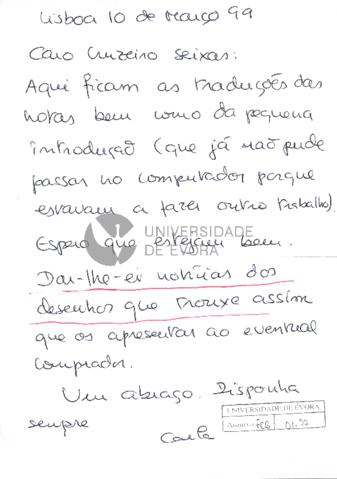 Lisboa 10 de Março 99
Caro Cruzeiro Seixas:
Aqui ficam as traduções das
notas bem como da pequena
introdução (que já não pude
passar no computador porque
estavam a fazer outro trabalho).
UNIVERSIDADE
DE ÉVORA
Espero que estejam bem.
Dar-lhe-ei notícias dos
desenhos que trouxe assim
que os apresentar ao eventual
comprador.
Um abraço. Disponha
sempre
Carla
UNIVERSIDADE DE ÉVORA